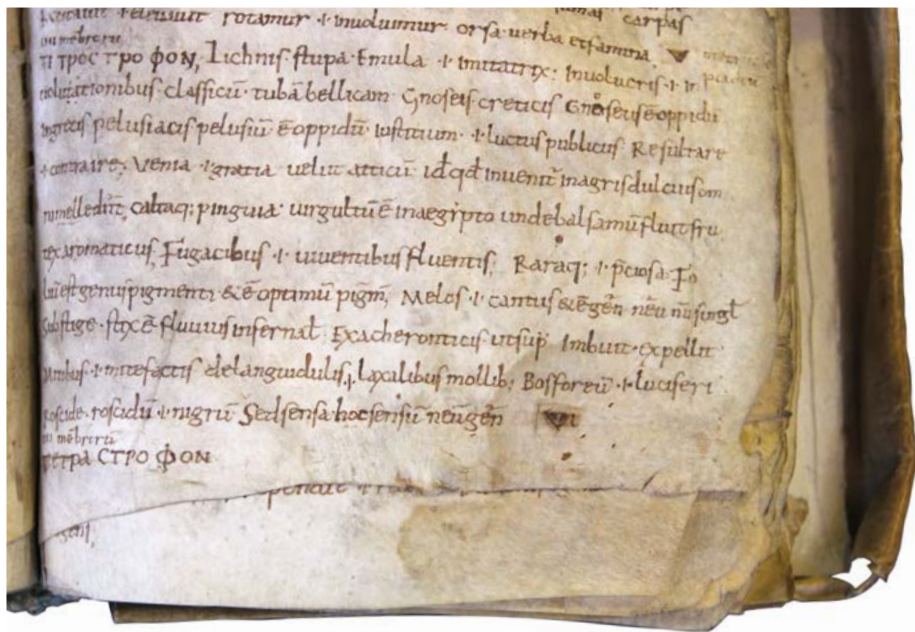 eleuauit rotamur · i · inuoluimur · orsa · uerba et famina carpas
iiii mēbrorū
ΤΙ ΤΡΟϹ ΤΡΟ ΦΟΝ, Lichnis · stupa · Emula · i · imitatrix: Inuolucris · i · in
uolutationibus · classicū · tubā bellicam · Gnoseis creticis Gnoseus ē oppidū
ingrecis pelusiacis pelusiū ē oppidū iustitium · i · luctus publicus Resultare
contraire; Venia · i gratia uelut atticū id qđ inuenit̄ in agris dulcius om
melle calta q; pinguia · uirgultū ē in aegypto unde balsamū fluit fru
tex aromaticus. Fugacibus · i · uiuentibus fluentis; Rara q; · i · p̄ciosa · Fo
liū est genus pigmenti · & ē optimū pigm̄, Melos · i · cantus & ē geñ neū singl̄
Substige · stix ē fluuius infernal̄ Exacheronticis ut sup̄ Imbuit · expellit
· i · mitefactis delanguidulis, i, laxalibus mollib; Bosforeū · i · luciferi
Roscide · roscidū · i · nigrū Sed sensa · hoc sensū neū geñ
iiii mēbrorū
ΤΕΤΡΑ ϹΤΡΟ ΦΟΝ